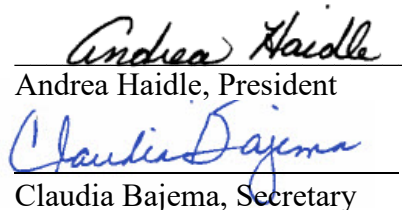 Andrea Haidle
Andrea Haidle, President
Claudia Bajema
Claudia Bajema, Secretary